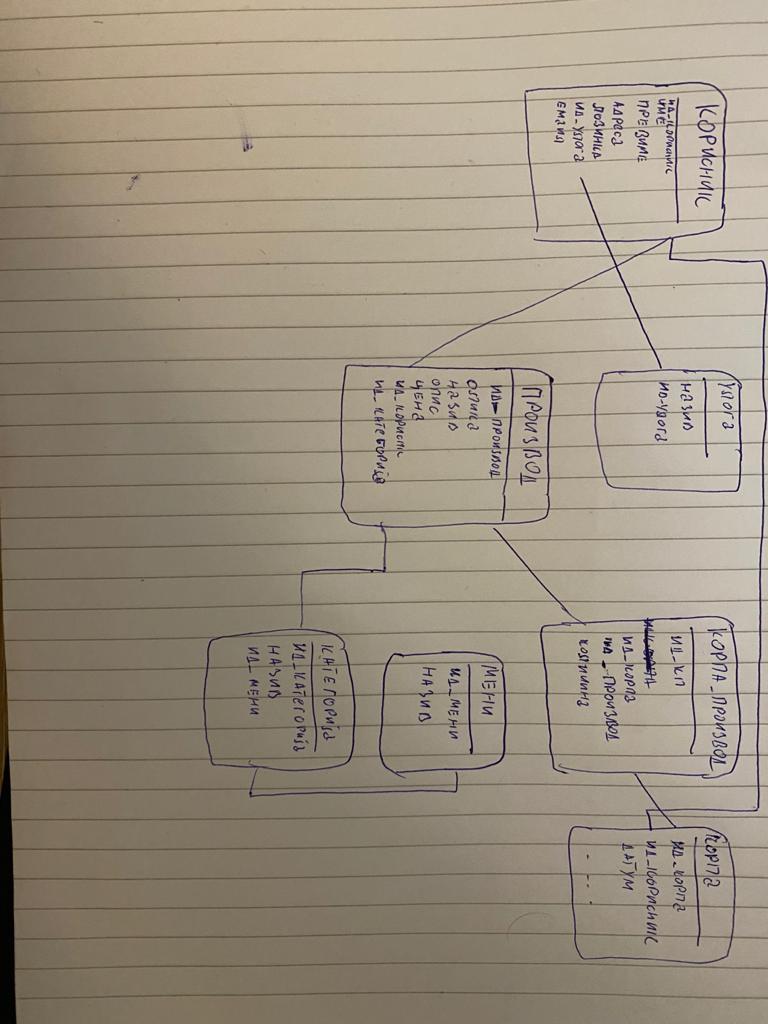 КОРИСНИК
ИД_КОРИСНИК
ИМЕ
ПРЕЗИМЕ
АДРЕСА
ЛОЗИНКА
ИД_УЛОГА
ЕМАИЛ
УЛОГА
НАЗИВ
ИД-УЛОГА
КОРПА_ПРОИЗВОД
ИД_КП
ИД_КОРПА
ИД_ПРОИЗВОД
КОЛИЧИНА
КОРПА
ИД_КОРПА
ИД_КОРИСНИК
ДАТУМ
. . . .
ПРОИЗВОД
ИД_ПРОИЗВОД
СЛИКА
НАЗИВ
ОПИС
ЦЕНА
ИД_КАТЕГОРИЈА
МЕНИ
ИД_МЕНИ
НАЗИВ
КАТЕГОРИЈА
ИД_КАТЕГОРИЈА
НАЗИВ
ИД_МЕНИ